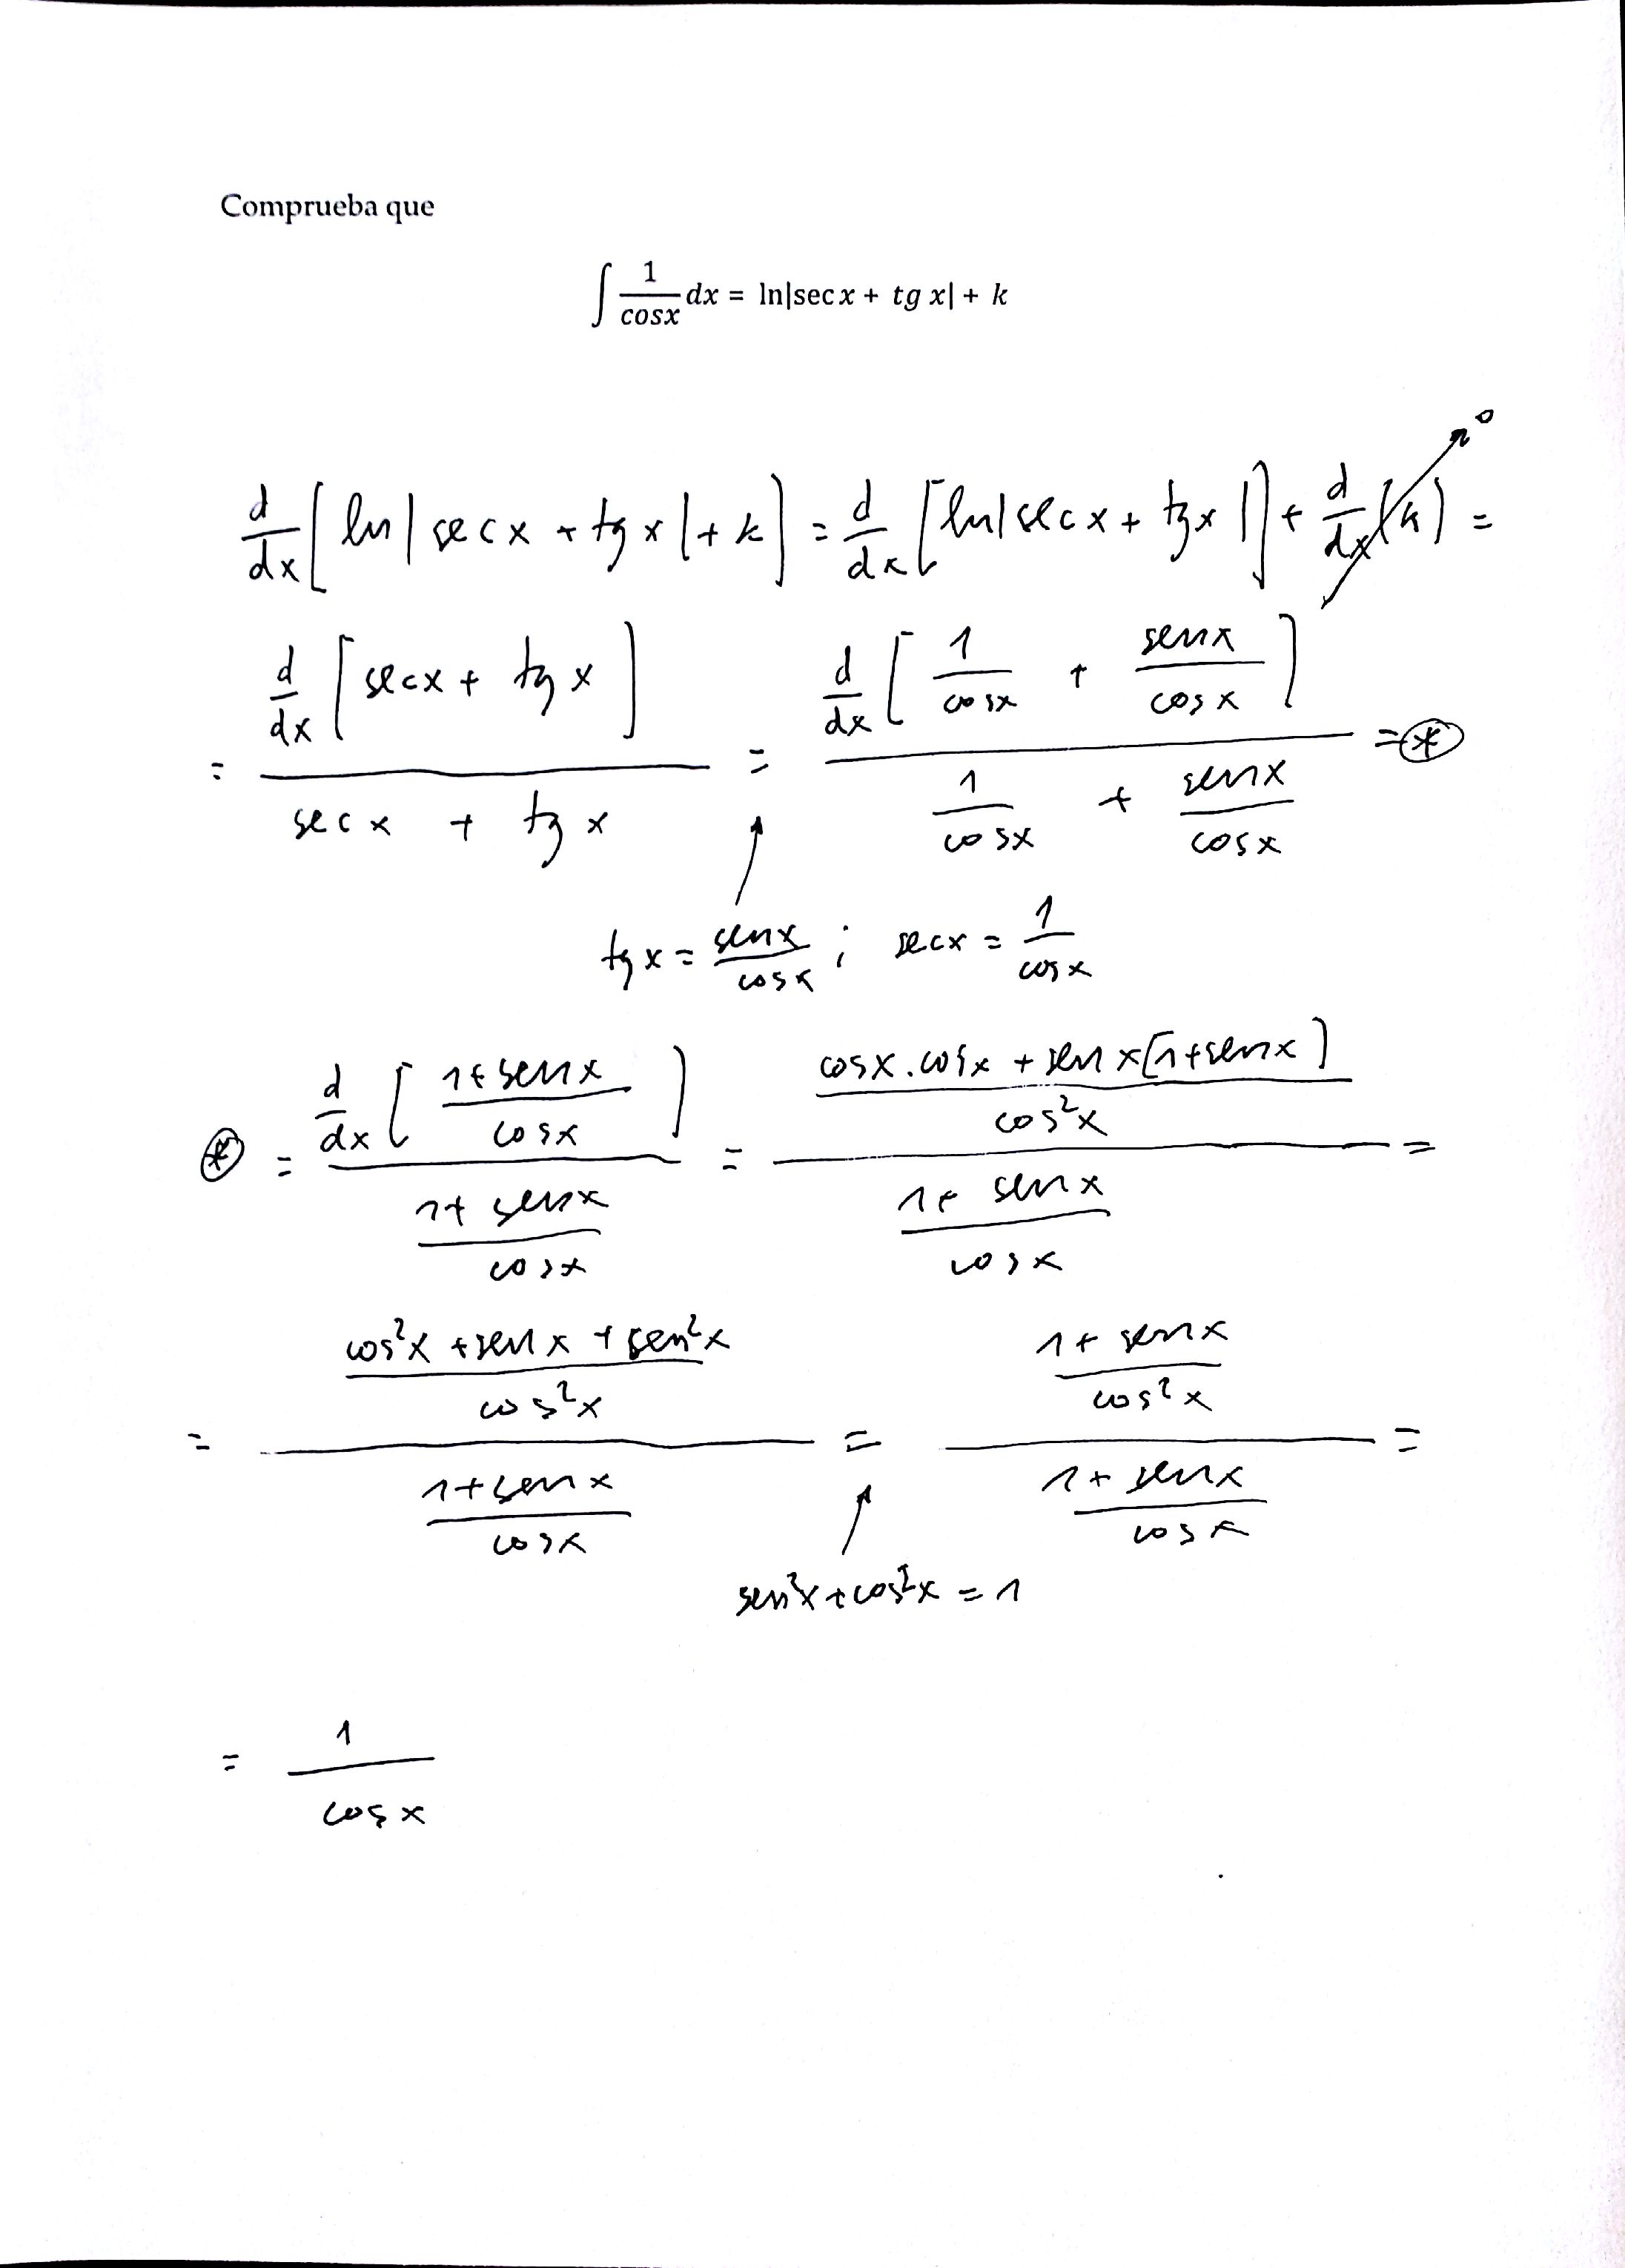 Comprueba que
∫ 1/cosx dx = ln|sec x + tg x| + k
d/dx [ln|sec x + tg x| + k] = d/dx [ln|sec x + tg x|] + d/dx (k) = 0
= d/dx [sec x + tg x] / (sec x + tg x) = d/dx [1/cosx + senx/cosx] / (1/cosx + senx/cosx) = ⊛
tg x = senx/cosx ; secx = 1/cosx
⊛ = d/dx [(1+senx)/cosx] / ((1+senx)/cosx) = ((cosx.cosx + sen x[1+senx])/cos²x) / ((1+senx)/cosx) =
= ((cos²x + sen x + sen²x)/cos²x) / ((1+senx)/cosx) = ((1+senx)/cos²x) / ((1+senx)/cosx) =
sen²x + cos²x = 1
= 1/cosx